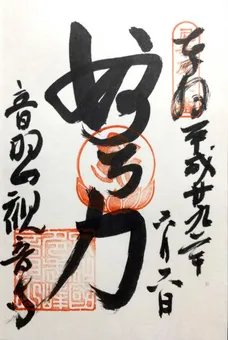 奉拝 平成廿九年六月六日
妙智力
音羽山観音寺